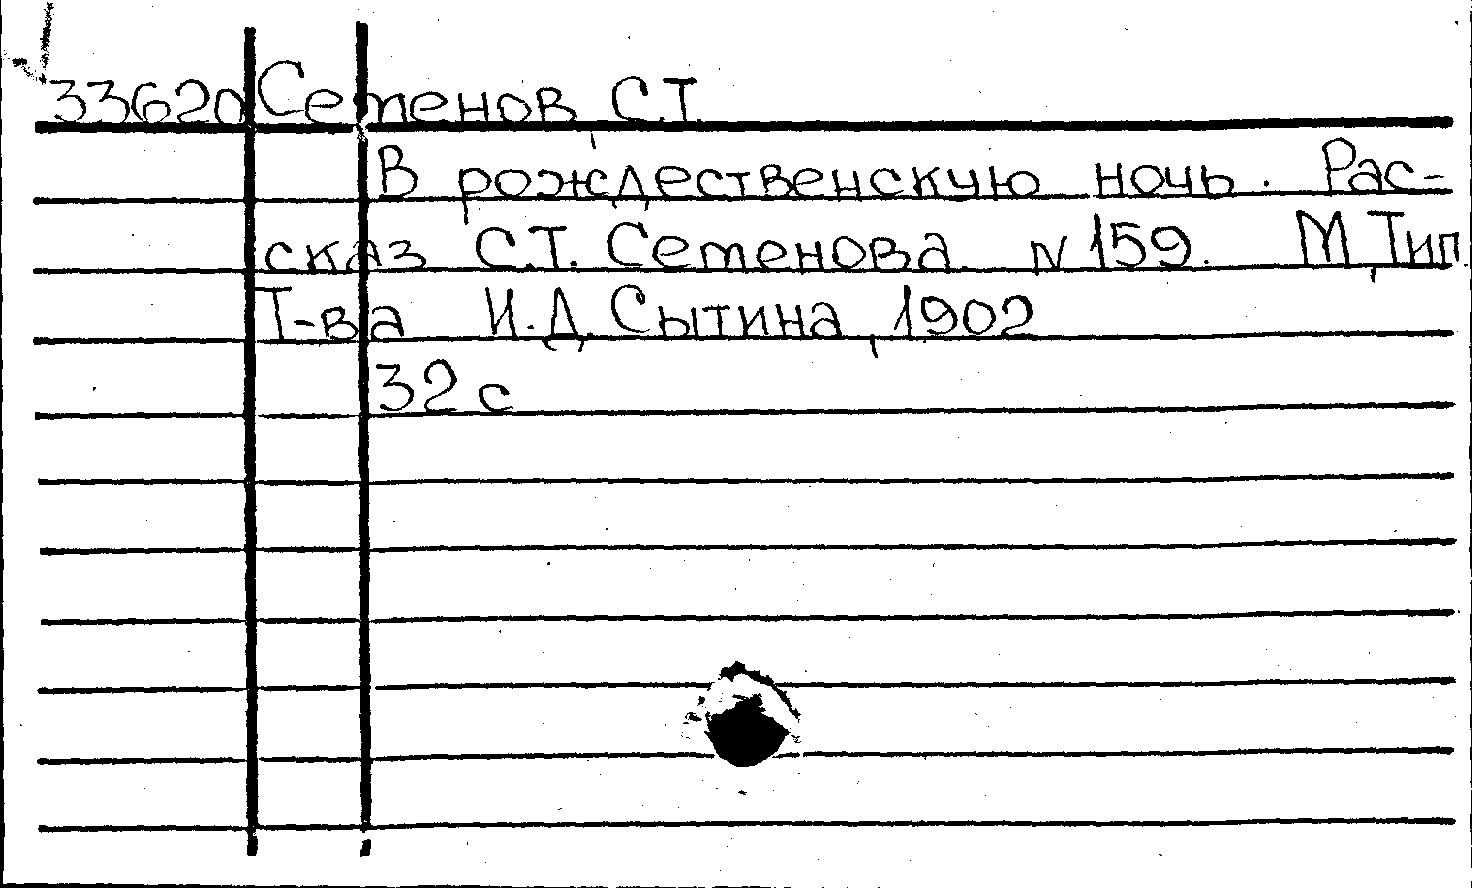 33620 Семенов, С.Т.
В рождественскую ночь. Рас-
сказ С.Т. Семенова. N 159. М, Тип.
Т-ва И.Д. Сытина, 1902
32 с